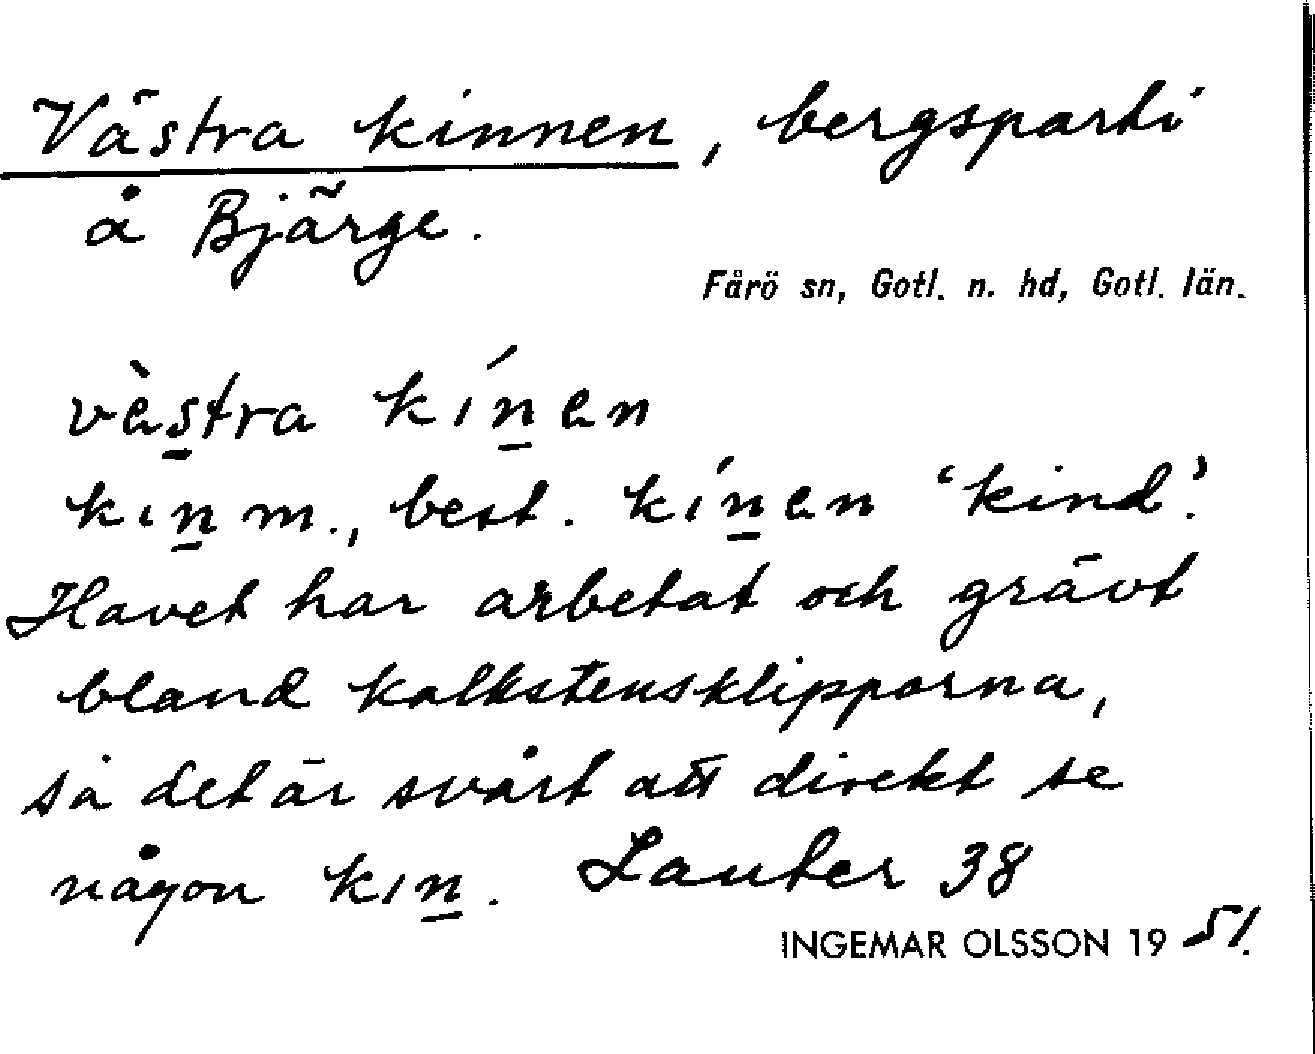 Västra kinnen, bergsparti
å Bjärge.
Fårö sn, Gotl. n. hd, Gotl. län.
vès̲tra kıń̲en
kın̲ m., best. kıń̲en ‘kind’.
Havet har arbetat och grävt
bland kalkstensklipporna,
så det är svårt att direkt se
någon kın̲. Lauter 38
INGEMAR OLSSON 1951.